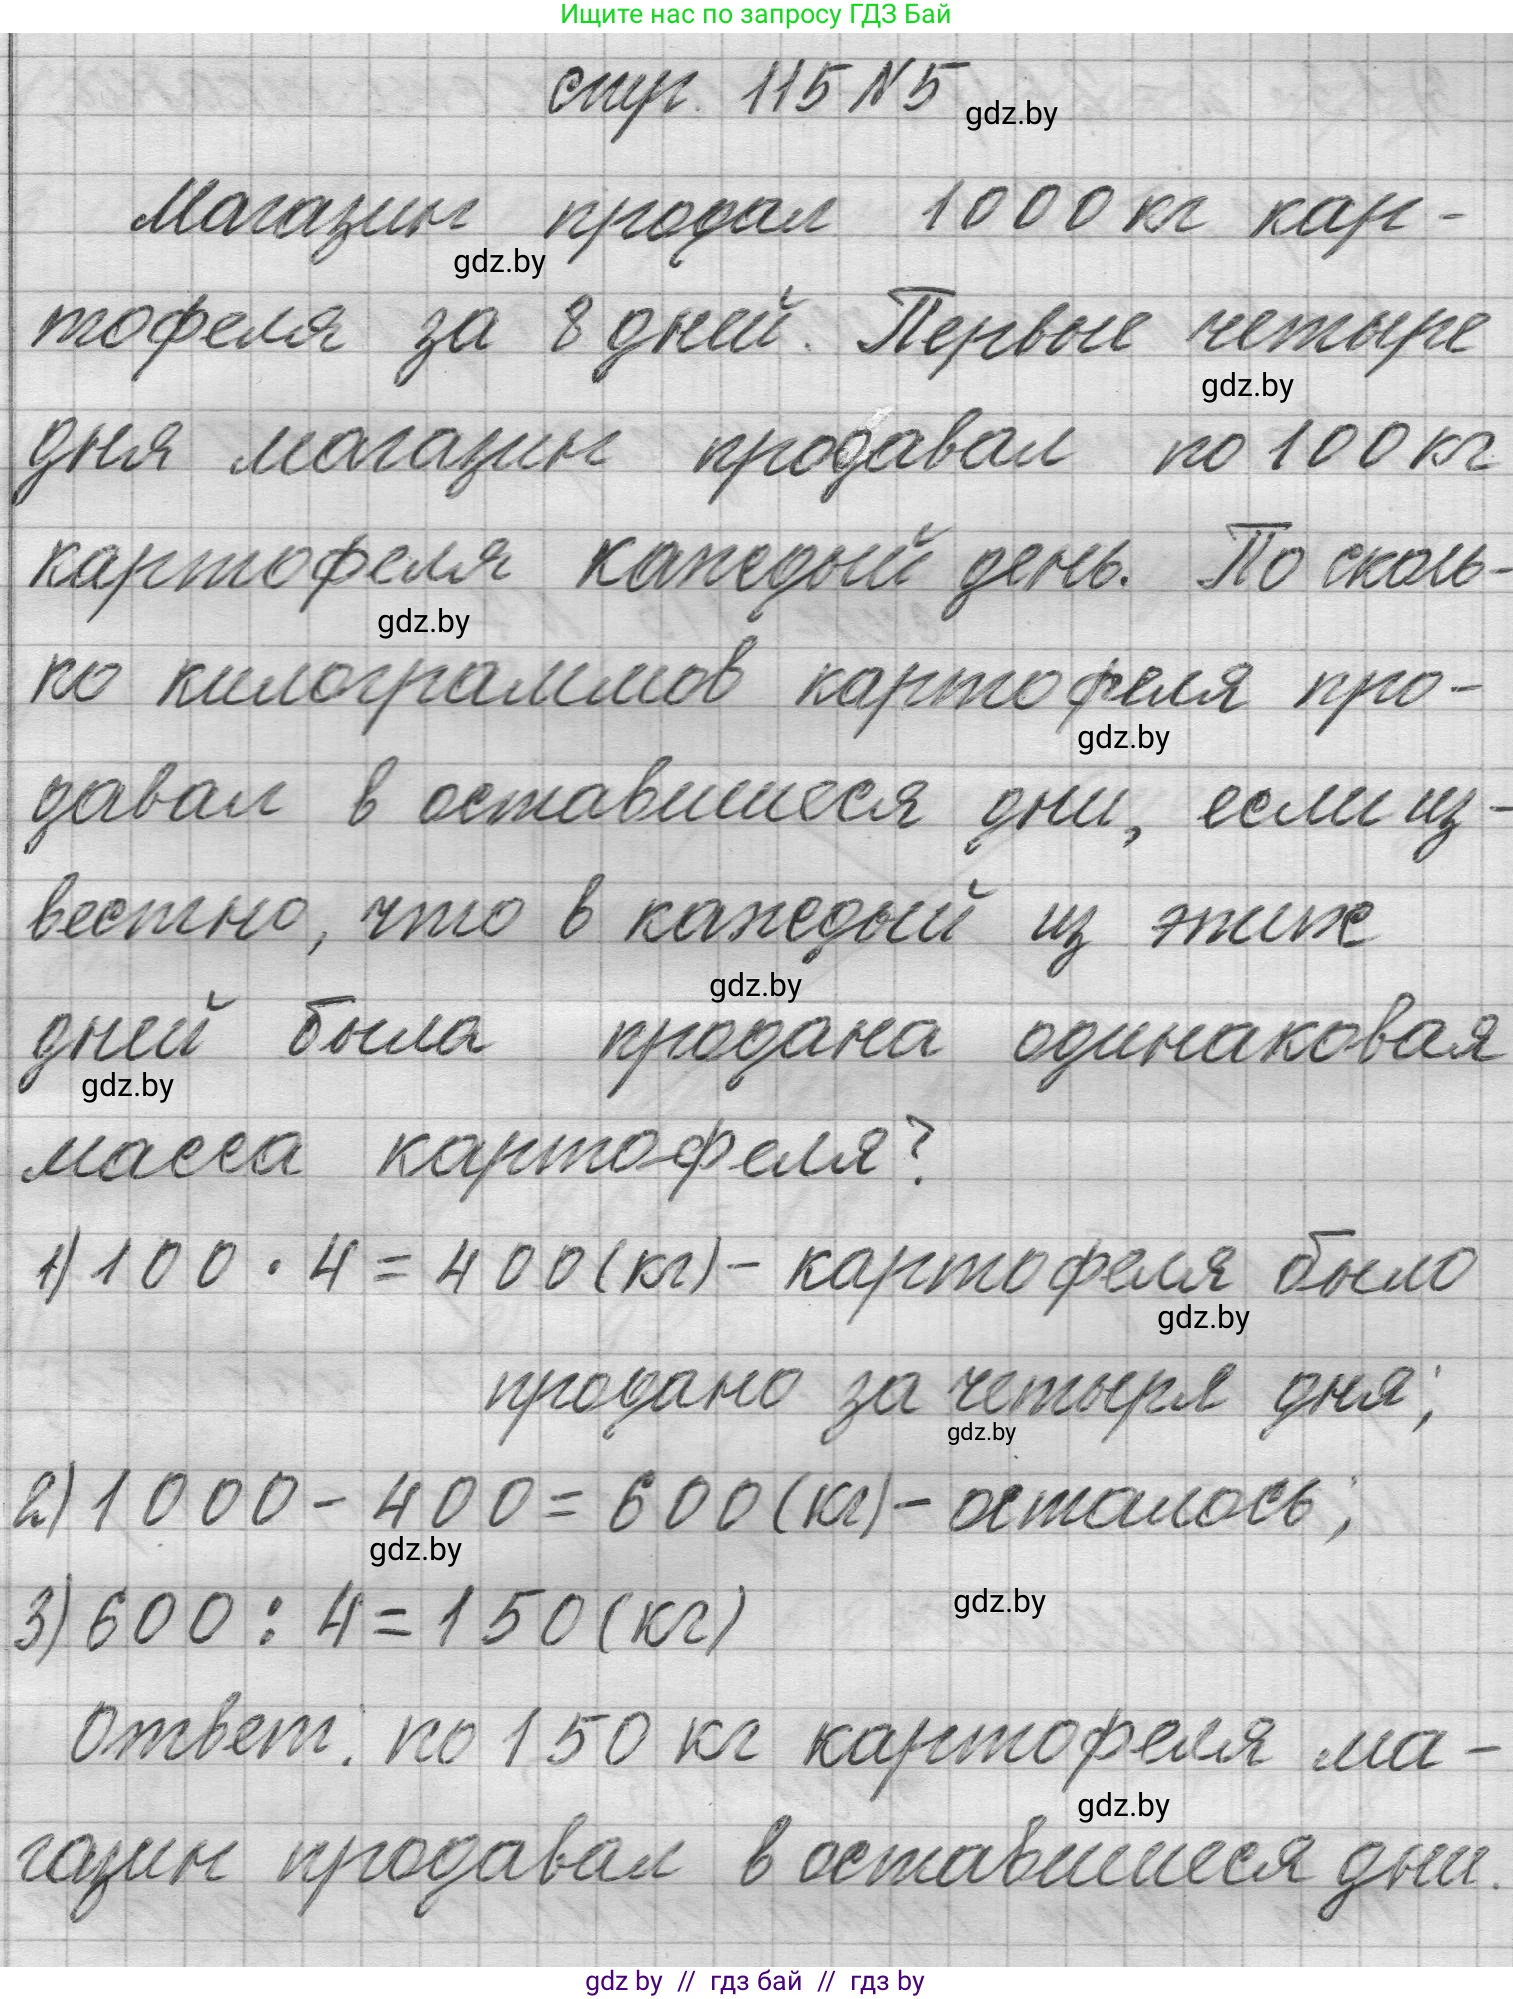 Ищите нас по запросу ГДЗ Бай
стр. 115 №5
gdz.by
Магазин продал 1000 кг кар-
gdz.by
тофеля за 8 дней. Первые четыре
gdz.by
дня магазин продавал по 100 кг
картофеля каждый день. По сколь-
gdz.by
ко килограммов картофеля про-
gdz.by
давал в оставшиеся дни, если из-
вестно, что в каждый из этих
gdz.by
дней была продана одинаковая
gdz.by
масса картофеля?
1) 100 · 4 = 400 (кг) - картофеля было
gdz.by
продано за четыре дня;
gdz.by
2) 1000 - 400 = 600 (кг) - осталось;
gdz.by
3) 600 : 4 = 150 (кг)
gdz.by
Ответ: по 150 кг картофеля ма-
gdz.by
газин продавал в оставшиеся дни.
gdz by // гдз бай // гдз by